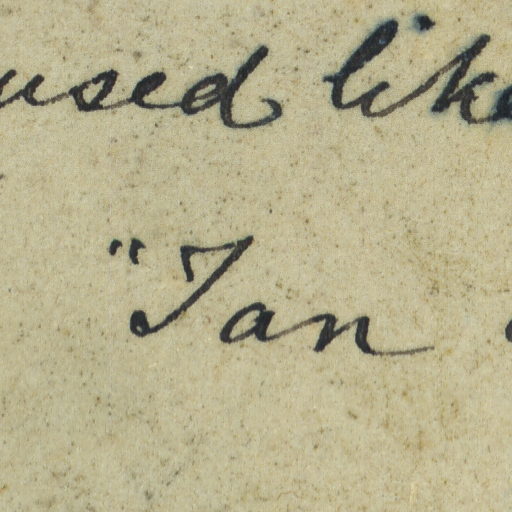 used like
"Tan